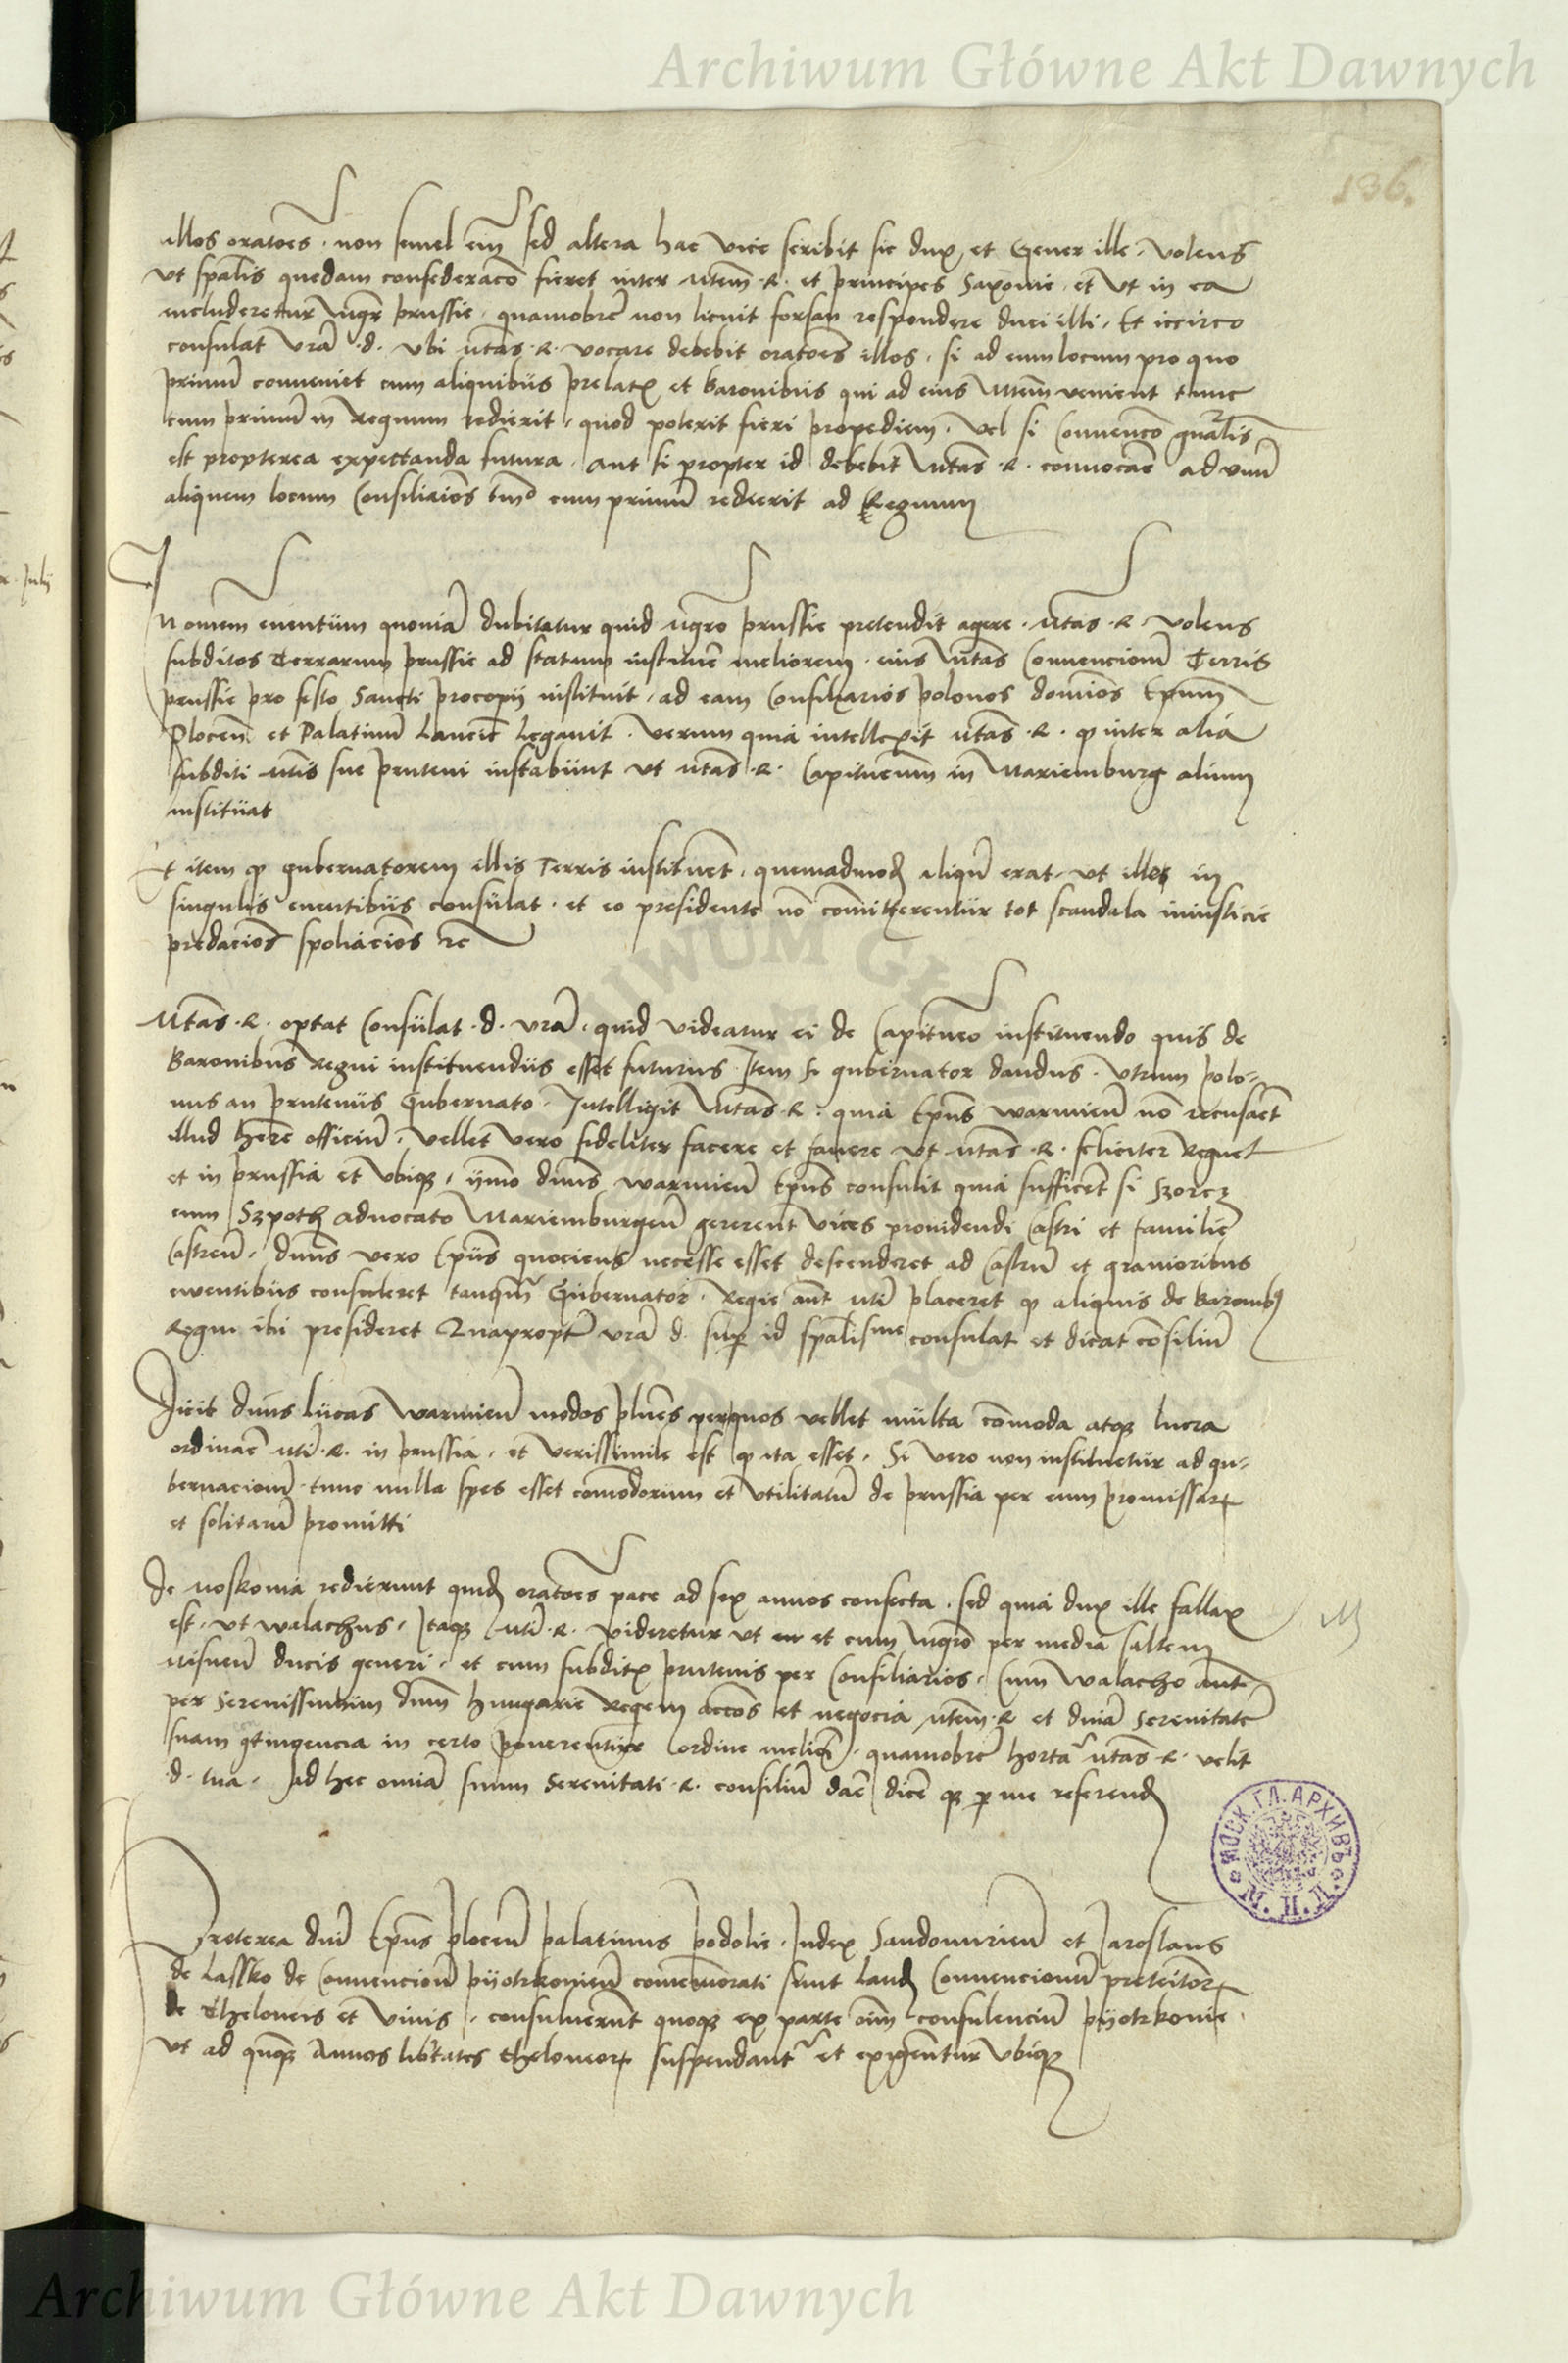 Archiwum Główne Akt Dawnych
136.
illos oratoes · non semel em sed altera hac vice scribit sic dux et Gener ille · volens
ut spalis quedam confederaco fieret inter Mtem · R · et principes Saxonie · et ut in ea
includeretur Mgr prussie · quamobre non licuit forsan respondere duci illi · Et iccirco
consulat vra · d · ubi Mtas · R · vocare debebit oratoes illos · si ad eum locum pro quo
primum conveniet cum aliquibus prelatis et baronibus qui ad eius Mtem venient tunc
cum primum in Regnum redierit · quod poterit fieri propediem · vel si Convenco gnalis
est propterea expectanda futura · aut si propter id debebit Mtas · R · convocare ad unum
aliquem locum Consiliarios tmo cum primum redierit ad Regnum
In omem eventum quoniam dubitatur quid Mgro prussie pretendit agere · Mtas · R · volens
subditos Terrarum prussie ad statum instituere meliorem · eius Mtas Convencionem Terris
prussie pro festo Sancti procopij instituit · ad eam Consiliarios polonos dominos Epum
Plocen et Palatinum Lancic Legavit · verum quia intellexit Mtas · R · q inter alia
subditi Mtis sue pruteni instabunt ut Mtas · R · Capitneum in Mariemburg alium
instituat
Et item q gubernatorem illis Terris institueret · quemadmod aliqn erat · ut illos in
singulis eventibus consulat · et eo presidente no comitterentur tot scandala iniusticie
predacios spoliacios rc
Mtas · R · optat Consulat · d · vra · quid videatur ei de Capitneo instituendo quis de
Baronibus Regni instituendus esset futurus Item Si gubernator dandus · utrum polo-
nus an prutenus Gubernato · Intelligit Mtas · R · quia Epus warmien no recusaret
illud here officium · vellet vero fideliter facere et favere ut Mtas · R · feliciter Regnet
et in prussia et ubique · ymo dnus warmien Epus consulit quia sufficeret si Szorcz
cum Szpoth advocato Mariemburgen gererent vices providendi Castri et familie
Castren · dnus vero Epus quociens necesse esset descenderet ad Castrum et gravioribus
eventibus consuleret tanqm Gubernator · Regie aut Mti placeret q aliquis de Baronib
Regni ibi presideret Quapropter vra d · sup id spalisme consulat et dicat consilium
Dicit dnus lucas warmien modos plures per quos vellet multa comoda atque lucra
ordinare Mti · R · in prussia · et verissimile est q ita esset · Si vero non institueretur ad gu-
bernacionem · tunc nulla spes esset comodorum et utilitatum de prussia per eum promissar
et solitarum promitti
De Moskovia redierunt quid oratoes pace ad sex annos confecta · sed quia dux ille fallax
est · ut walachus · Itaque Mti · R · videretur ut et cum Mgro per media saltem
Misnen ducis generi · et cum subditis prutenis per Consiliarios · Cum walacho aute
per Serenissimum dnum hungarie Regem accos et negocia Mtem · R et dnia Serenitate
suam contingencia in certo ponerentur ordine meliori · quamobre horta Mtas · R · velit
· d · tua · ad hec omia suum Serenitati · R · consilium dare dicere q p me referend
M
Preterea dni Epus plocen palatinus podolie · Iudex Sandomirien et Jaroslaus
de Lassko de Convencione pyotrkovien comemorati sunt laud Convencionum preteritor
de Theloneis et vinis · consuluerunt quoque ex parte oim consulencium pyotrkovie ·
ut ad quinque Annos libertates theloneor suspendant et exigentur ubique
МОСК. ГЛ. АРХИВЪ
М. И. Д.
Archiwum Główne Akt Dawnych